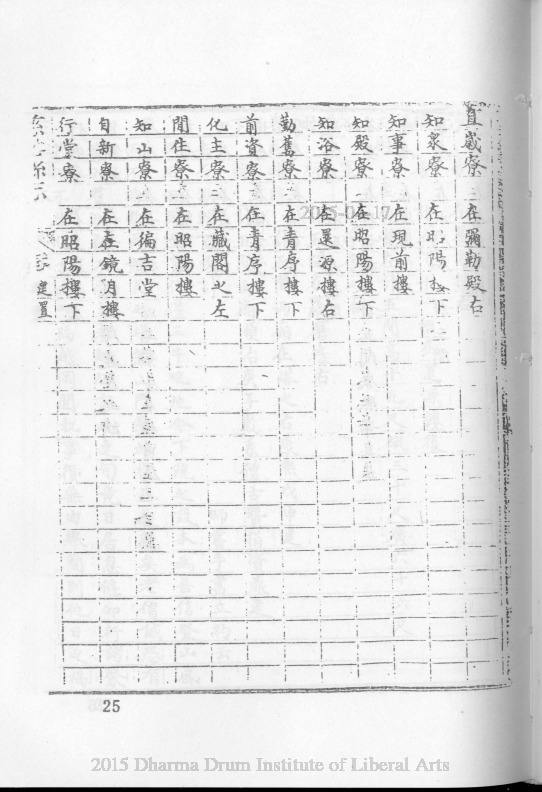 直歲寮 在彌勒殿右
知眾寮 在昭陽樓下
知事寮 在現前樓
知殿寮 在昭陽樓下
知浴寮 在還源樓右
勤舊寮 在青序樓下
前資寮 在青序樓下
化主寮 在藏閣之左
閒住寮 在昭陽樓
知山寮 在徧吉堂
自新寮 在鏡月樓
行堂寮 在昭陽樓下
建置
25
2015 Dharma Drum Institute of Liberal Arts